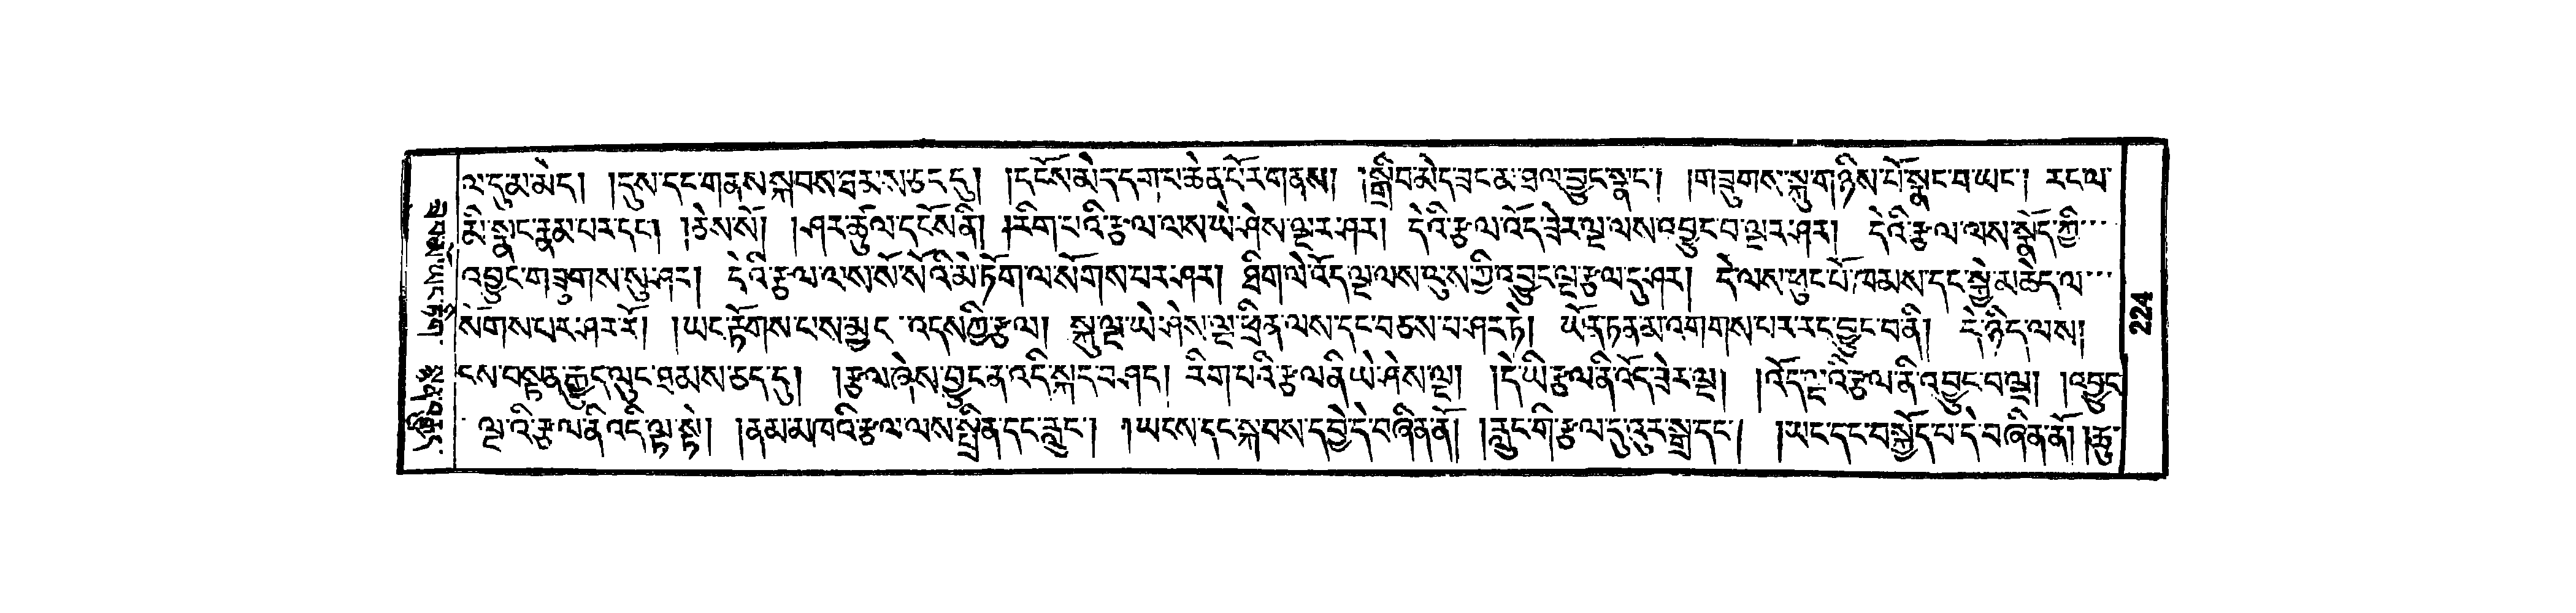 ལ་དུམ་མེད། །དུས་དང་གནས་སྐབས་ཐམས་ཅད་དུ། །དངོས་མེད་དག་པ་ཆེན་པོར་གནས། །སྒྲིབ་མེད་ཟང་མ་ཐལ་བྱུང་སྣང་། །གཟུགས་སྐུ་གཉིས་པོ་སྣང་བ་ཡང་། རང་ལ་
མི་སྣང་རྣམ་པར་དང་། །ཅེས་སོ། །ཤར་ཚུལ་དངོས་ནི། །རིག་པའི་རྩལ་ལས་ཡེ་ཤེས་ལྔར་ཤར། དེའི་རྩལ་འོད་ཟེར་ལྔ་ལས་འབྱུང་བ་ལྔར་ཤར། དེའི་རྩལ་ལས་སྣོད་ཀྱི་
འབྱུང་གཟུགས་སུ་ཤར། དེའི་རྩལ་ལས་སོ་སོའི་མེ་ཏོག་ལ་སོགས་པར་ཤར། ཐིག་ལེ་འོད་ལྔ་ལས་ལུས་ཀྱི་འབྱུང་ལྔ་རྩལ་དུ་ཤར། དེ་ལས་ཕུང་པོ་ཁམས་དང་སྐྱེ་མཆེད་ལ་
སོགས་པར་ཤར་རོ། །ཡང་རྟོགས་པས་མྱང་འདས་ཀྱི་རྩལ། སྐུ་ལྔ་ཡེ་ཤེས་ལྔ་ཕྲིན་ལས་དང་བཅས་པ་ཤར་ཏེ། ཡོན་ཏན་མ་འགགས་པར་རང་བྱུང་བ་ནི། དེ་ཉིད་ལས།
ངས་བསྟན་རྒྱུད་ལུང་ཐམས་ཅད་དུ། །རྩལ་ཞེས་བྱུང་ན་འདི་སྐད་བཤད། རིག་པའི་རྩལ་ནི་ཡེ་ཤེས་ལྔ། །དེ་ཡི་རྩལ་ནི་འོད་ཟེར་ལྔ། །འོད་ལྔའི་རྩལ་ནི་འབྱུང་བ་ལྔ། །འབྱུང་
ལྔའི་རྩལ་ནི་འདི་ལྟ་སྟེ། །ནམ་མཁའི་རྩལ་ལས་སྤྲིན་དང་རླུང་། །ཡངས་དང་སྐབས་དབྱེ་དེ་བཞིན་ནོ། །རླུང་གི་རྩལ་དུ་འུར་སྒྲ་དང་། །ཡང་དང་བསྐྱོད་པ་དེ་བཞིན་ནོ། །ཆུ་
224